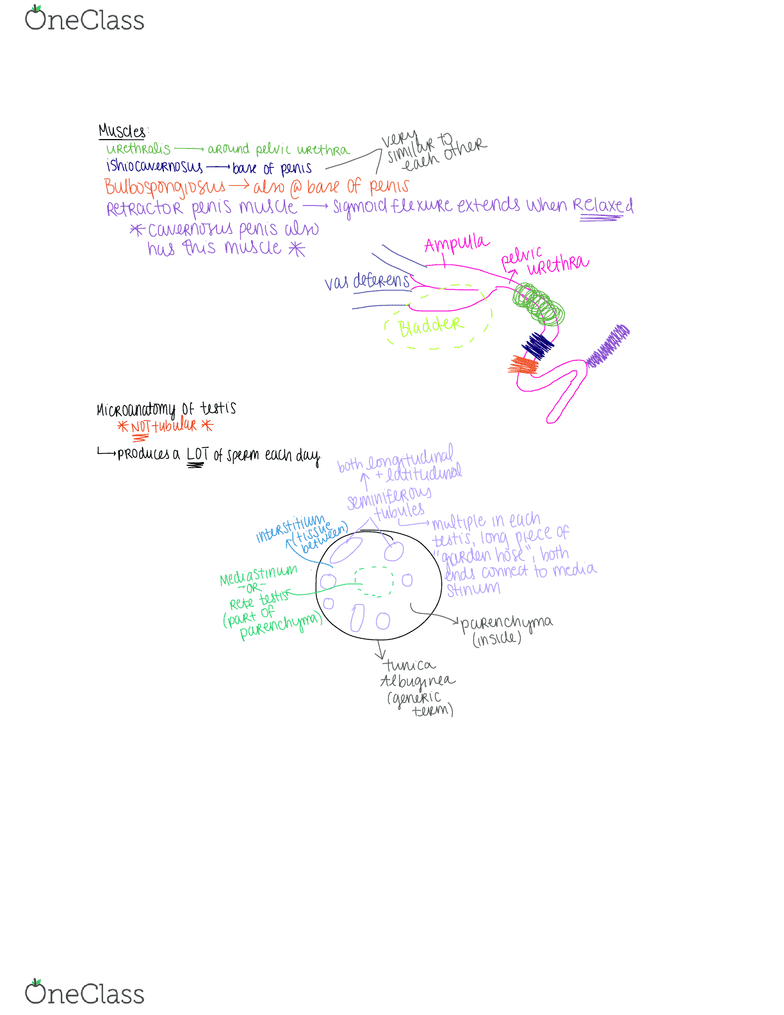 OneClass
Muscles:
urethralis → around pelvic urethra
ishiocavernosus → base of penis
very
similar to
each other
Bulbospongiosus → also @ base of penis
Retractor penis muscle → sigmoid flexure extends when Relaxed
* cavernosus penis also
has this muscle *
Ampulla
pelvic
urethra
vas deferens
Bladder
Microanatomy of testis
* NOT tubular *
→ produces a LOT of sperm each day
both longitudinal
+ latitudinal
seminiferous
tubules
→ multiple in each
testis, long piece of
"garden hose", both
ends connect to media
stinum
interstitium
(tissue
between)
Mediastinum
-OR-
Rete testis
(part of
parenchyma)
parenchyma
(inside)
tunica
Albuginea
(generic
term)
OneClass